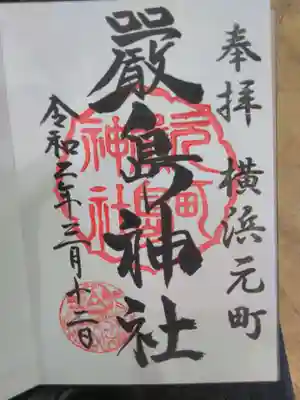 奉拝 横浜元町
嚴島神社
元町
神社
令和二年三月十二日